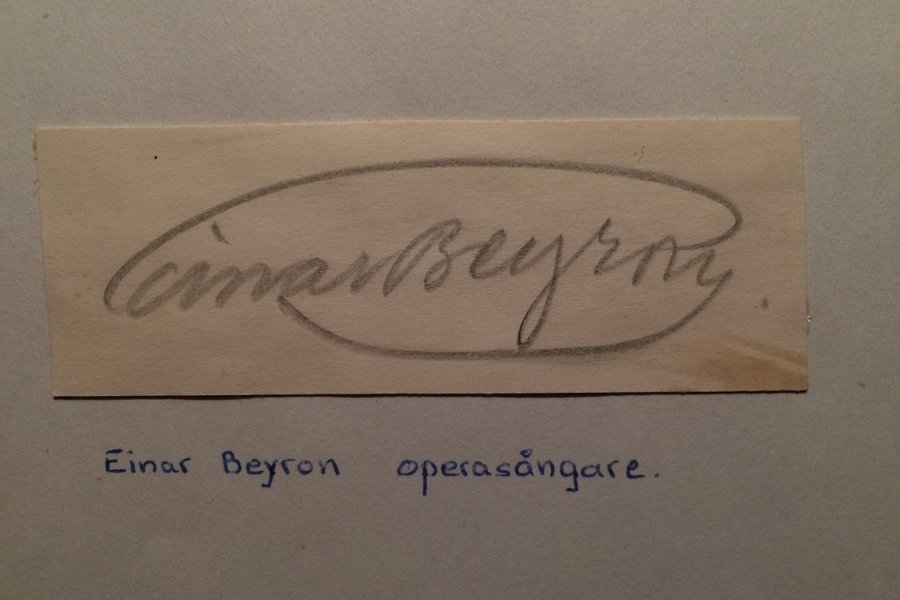 Einar Beyron
Einar Beyron operasångare.